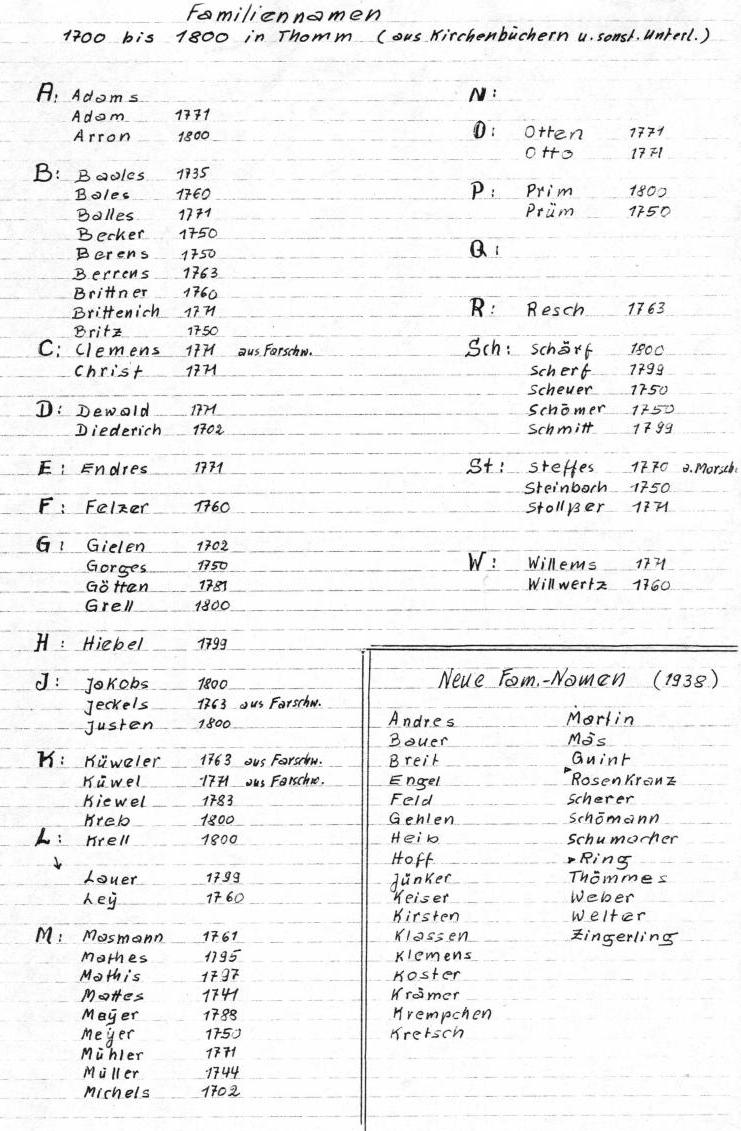 Familiennamen
1700 bis 1800 in Thomm (aus Kirchenbüchern u. sonst. Unterl.)
A: Adams
Adam 1771
Arron 1800
B: Baales 1735
Bales 1760
Balles 1771
Becker 1750
Berens 1750
Berrens 1763
Brittner 1760
Brittenich 1771
Britz 1750
C: Clemens 1771 aus Farschw.
Christ 1771
D: Dewald 1771
Diederich 1702
E: Endres 1771
F: Felzer 1760
G: Gielen 1702
Gorges 1750
Götten 1781
Grell 1800
H: Hiebel 1799
J: Jakobs 1800
Jeckels 1763 aus Farschw.
Justen 1800
K: Küweler 1763 aus Farschw.
Küwel 1771 aus Farschw.
Kiewel 1783
Kreb 1800
L: Krell 1800
↓
Lauer 1799
Leÿ 1760
M: Masmann 1761
Mathes 1795
Mathis 1797
Mattes 1741
Maÿer 1788
Meÿer 1750
Mühler 1771
Müller 1744
Michels 1702
N:
O: Otten 1771
Otto 1771
P: Prim 1800
Prüm 1750
Q:
R: Resch 1763
Sch: Schärf 1800
Scherf 1799
Scheuer 1750
Schömer 1750
Schmitt 1799
St: Steffes 1770 a. Morsch.
Steinbach 1750
Stollßer 1771
W: Willems 1771
Willwertz 1760
Neue Fam.-Namen (1938)
Andres
Bauer
Breit
Engel
Feld
Gehlen
Heib
Hoff
Jünker
Keiser
Kirsten
Klassen
Klemens
Koster
Krämer
Krempchen
Kretsch
Martin
Mäs
Quint
Rosenkranz
Scherer
Schömann
Schumacher
Ring
Thömmes
Weber
Welter
Zingerling